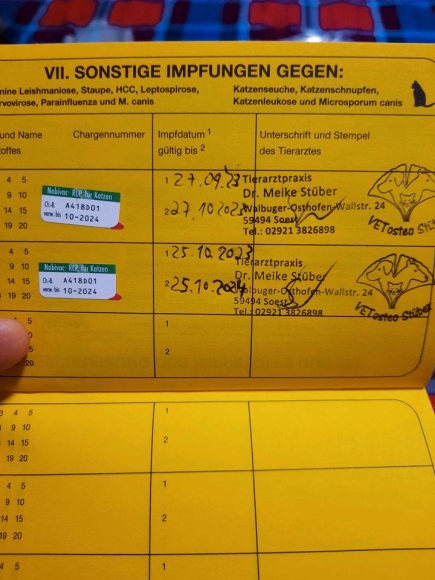 VII. SONSTIGE IMPFUNGEN GEGEN:
nine Leishmaniose, Staupe, HCC, Leptospirose,
rvovirose, Parainfluenza und M. canis
Katzenseuche, Katzenschnupfen,
Katzenleukose und Microsporum canis
und Name
offes
Chargennummer
Impfdatum 1
gültig bis 2
Unterschrift und Stempel
des Tierarztes
4 5
9 10
14 15
19 20
Nobivac RCP, für Katzen
Ch.-B. A418D01
verw. bis 10-2024
1 27.09.23
2 27.10.2023
Tierarztpraxis
Dr. Meike Stüber
Walbuger-Osthofen-Wallstr. 24
59494 Soest
Tel.: 02921 3826898
VETosteo Stüber
4 5
9 10
14 15
19 20
Nobivac RCP, für Katzen
Ch.-B. A418D01
verw. bis 10-2024
1 25.10.2023
2 25.10.2024
Tierarztpraxis
Dr. Meike Stüber
Walbuger-Osthofen-Wallstr. 24
59494 Soest
Tel.: 02921 3826898
VETosteo Stüber
5
20
1
2
4 5
9 10
14 15
19 20
1
2
4 5
9 10
14 15
19 20
1
2
4 5
1